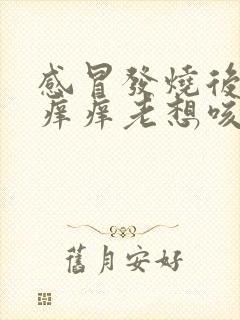 感冒發燒後
痒痒老想咳
舊月安好